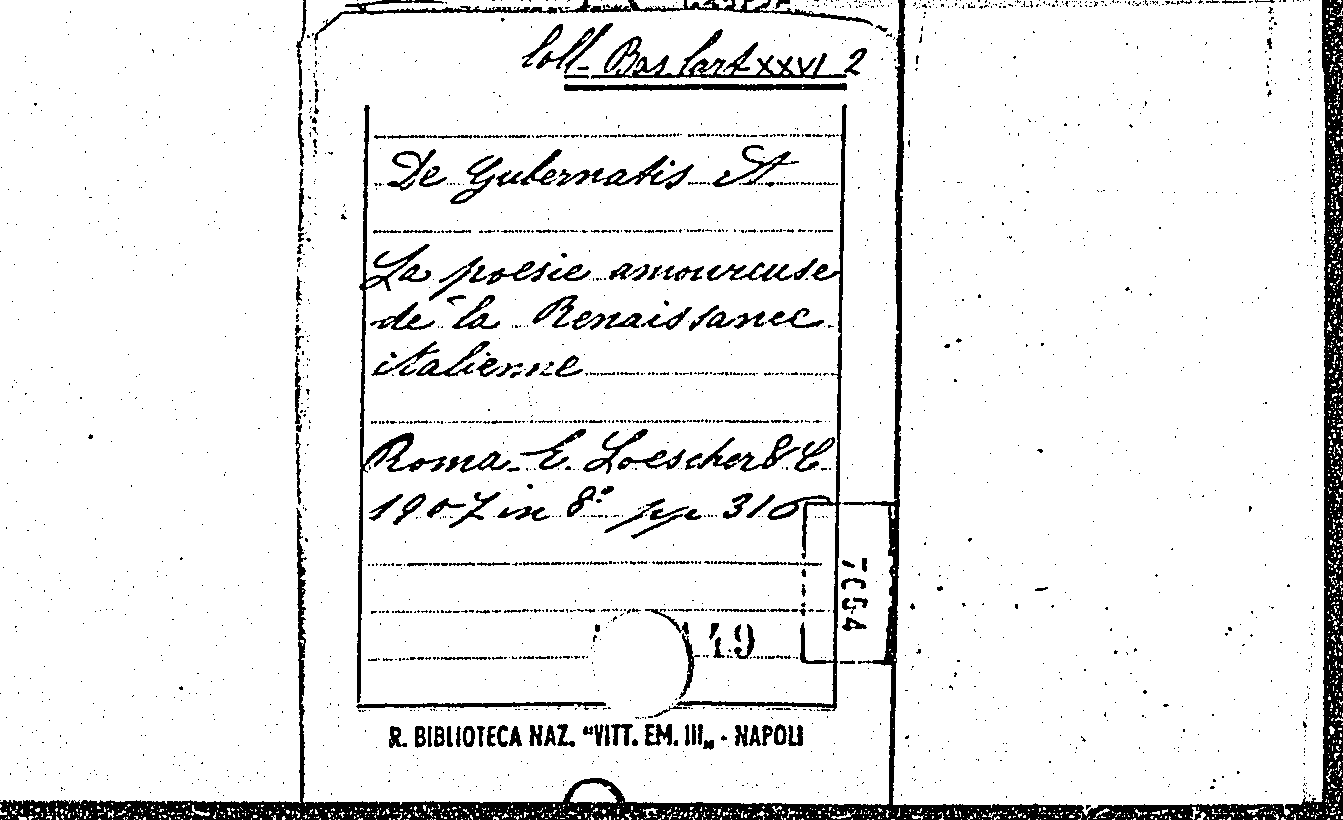 Coll. Bas. Cart XXVI 2
De Gubernatis A.
La poesie amoureuse
de la Renaissance
italienne
Roma. E. Loescher & C.
1907 in 8° pp 316
49
R. BIBLIOTECA NAZ. "VITT. EM. III„ - NAPOLI